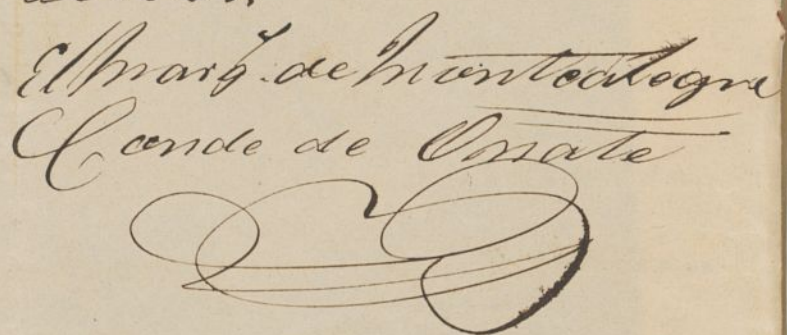 El Marq. de Montealegre
Conde de Oñate